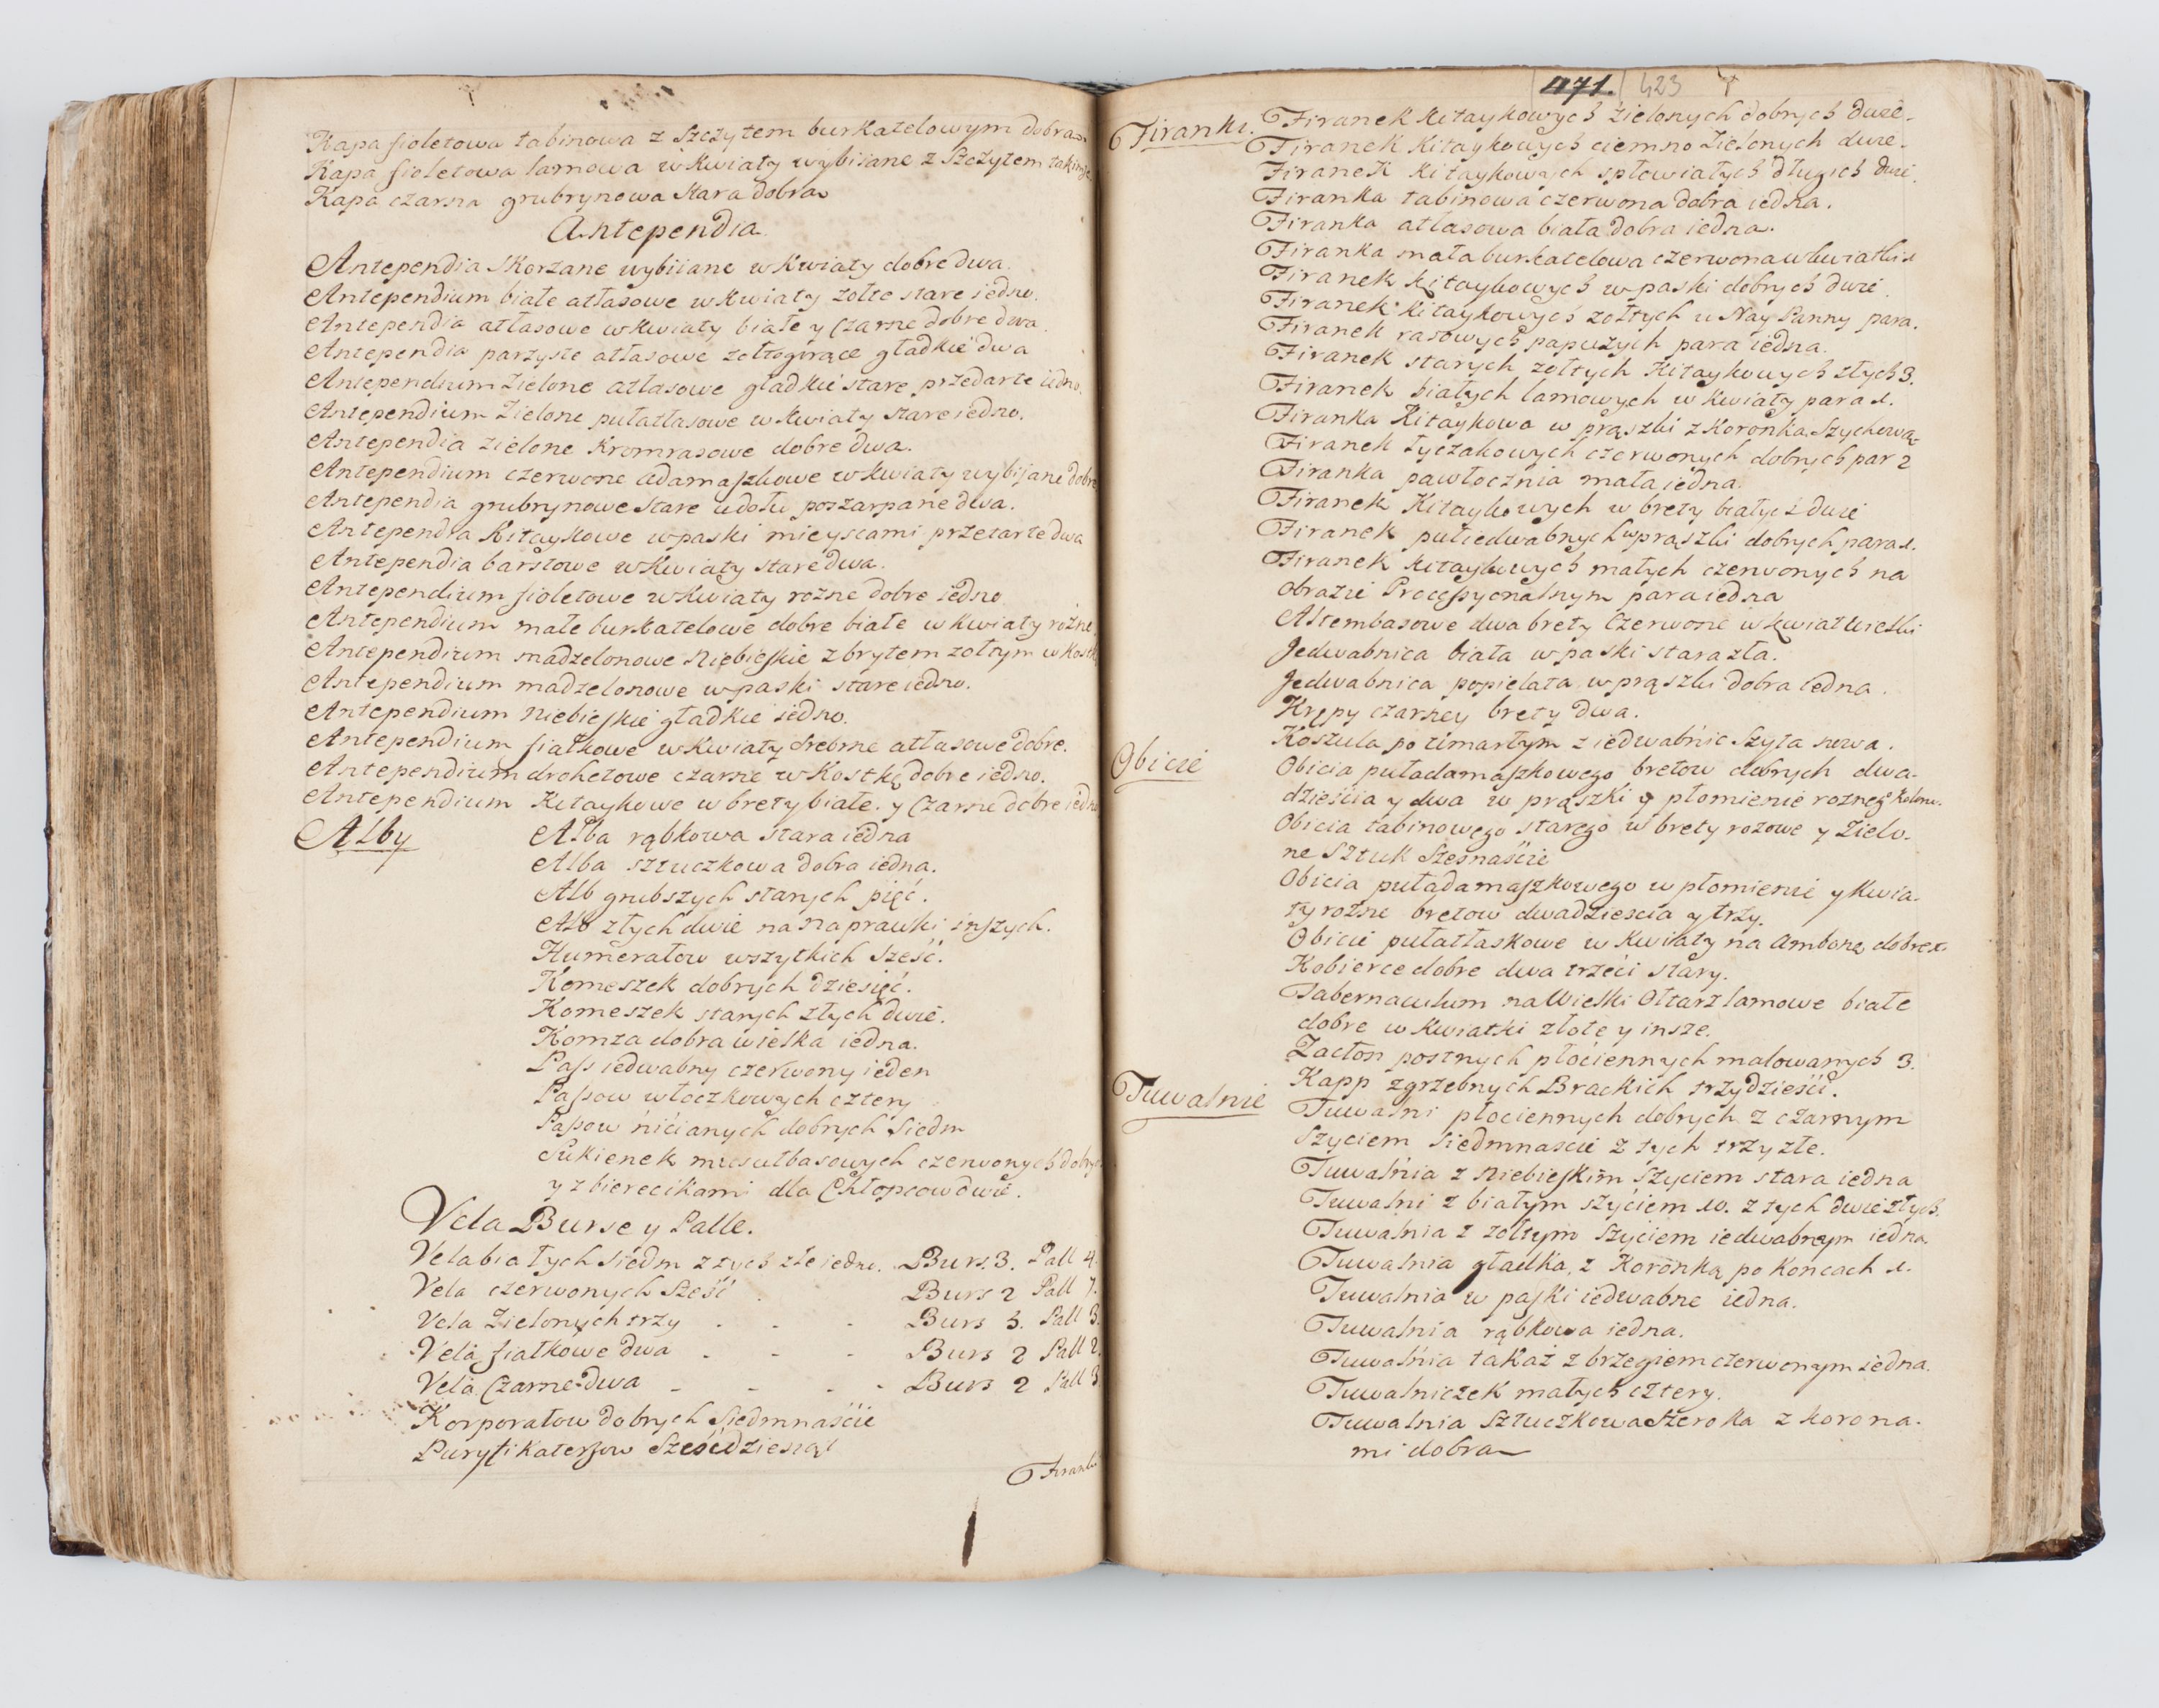 Kapa fioletowa tabinowa z Szczytem burkatelowym dobra
Kapa fioletowa lamowa w kwiaty wybiiane z Szczytem takimże
Kapa czarna grubrynowa stara dobra
Antependia
Antependia skorzane wybiiane w kwiaty dobre dwa.
Antependium białe atłasowe w kwiaty zołte stare iedno.
Antependia atłasowe w kwiaty białe y Czarne dobre dwa.
Antependia parzyste atłasowe zołtogorące gładkie dwa
Antependium Zielone atłasowe gładkie stare przedarte iedno.
Antependium Zielone pułatłasowe w kwiaty stare iedno.
Antependia zielone Kromrasowe dobre dwa.
Antependium czerwone Adamaszkowe w kwiaty wybijane dobre
Antependia grubrynowe stare udołu poszarpane dwa.
Antependia Kitaykowe w paski mieyscami przetarte dwa
Antependia barstowe w kwiaty stare dwa.
Antependium fioletowe w kwiaty rozne dobre iedno
Antependium małe burkatelowe dobre białe w kwiaty rożne.
Antependium madzelonowe Niebieskie z brytem zołtym w Kostkę
Antependium madzelonowe w paski stare iedno.
Antependium Niebieskie gładkie iedno.
Antependium fiałkowe w kwiaty srebrne atłasowe dobre.
Antependium drohetowe czarne w Kostkę dobre iedno.
Antependium Kitaykowe w brety białe y Czarne dobre iedno
Alby
Alba rąbkowa stara iedna
Alba sztuczkowa dobra iedna.
Alb grubszych starych pięć.
Alb złych dwie na Naprawki inszych.
Humerałow wszytkich sześć.
Komeszek dobrych dziesięć.
Komeszek starych złych dwie.
Komza dobra wielka iedna.
Pass iedwabny czerwony ieden
Passow włoczkowych cztery
Passow nicianych dobrych siedm
Sukienek musułbasowych czerwonych dobrych
y z bierecikami dla Chłopcow dwie.
Vela Burse y Palle.
Vela białych siedm z tych złe iedno. Burs 3. Pall 4.
Vela czerwonych sześć . Burs 2 Pall 7.
Vela Zielonych trzy . - - Burs 3. Pall 3.
Vela fiałkowe dwa . - - Burs 2 Pall 2.
Vela Czarne dwa - - - - Burs 2 Pall 3
Korporałow dobrych siedmnaście
Puryfikaterzow sześćdziesiąt
Firanki
471. 423
Firanki.
Firanek Kitaykowych zielonych dobrych dwie.
Firanek Kitaykowych ciemno Zielonych dwie.
Firanek Kitaykowych spłowiałych długich dwie.
Firanka tabinowa czerwona dobra iedna.
Firanka atłasowa biała dobra iedna.
Firanka mała burkatelowa czerwona w kwiatki 1
Firanek kitaykowych w paski dobrych dwie.
Firanek kitaykowych zołtych u Nay Panny para.
Firanek rasowych papużych para iedna.
Firanek starych zołtych Kitaykowych złych 3.
Firanek białych lamowych w kwiaty para 1.
Firanka Kitaykowa w prąszki z Koronką Szychową
Firanek łyczakowych czerwonych dobrych par 2
Firanka pawłocznia mała iedna.
Firanek Kitaykowych w brety białych dwie
Firanek pułiedwabnych w prąszki dobrych para 1.
Firanek kitaykowych małych czerwonych na
obrazie Processyonalnym para iedna
Altembasowe dwa brety Czerwone w kwiat wielki
Jedwabnica biała w paski stara zła.
Jedwabnica popielata w prąszki dobra iedna.
Krępy czarney brety dwa.
Koszula po umarłym z iedwabnic szyta nowa.
Obicie
Obicia puładamaszkowego bretow dobrych dwa-
dzieścia y dwa w prąszki y płomienie roznego koloru.
Obicia tabinowego starego w brety rozowe y Zielo-
ne Sztuk szesnaście
Obicia puładamaszkowego w płomienie y kwia-
ty rozne bretow dwadzieścia y trzy.
Obicie pułatłaskowe w kwiaty na Ambonę dobre
Kobierce dobre dwa trzeci stary.
Tabernaculum na Wielki Ołtarz lamowe białe
dobre w kwiatki złote y insze.
Zasłon postnych płóciennych malowanych 3.
Kapp zgrzebnych Brackich trzydzieści.
Tuwalnie
Tuwalni płociennych dobrych z czarnym
szyciem siedmnaście z tych trzy złe.
Tuwalnia z Niebieskim szyciem stara iedna
Tuwalni z białym szyciem 10. z tych dwie złych.
Tuwalnia z zołtym szyciem iedwabnym iedna.
Tuwalnia gładka, z Koronką po Koncach 1.
Tuwalnia w paski iedwabne iedna.
Tuwalnia rąbkowa iedna.
Tuwalnia takaż z brzegiem czerwonym iedna.
Tuwalniczek małych cztery.
Tuwalnia sztuczkowa szeroka z korona-
mi dobra